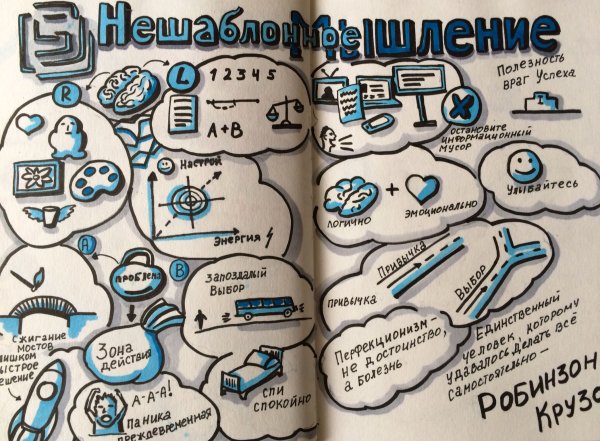 Нешаблонное
Мышление
R
L
1 2 3 4 5
A+B
Настрой
Энергия
Полезность
враг Успеха
1
остановите
информационный
мусор
логично
+
эмоционально
Улыбайтесь
A
проблема
B
Сжигание
мостов
решение
Запоздалый
Выбор
Зона
действия
А-А-А!
Паника
преждевременная
спи
спокойно
привычка
Привычка
Выбор
Перфекционизм-
не достоинство,
а болезнь
Единственный
человек, которому
удавалось делать всё
самостоятельно -
РОБИНЗОН
КРУЗО